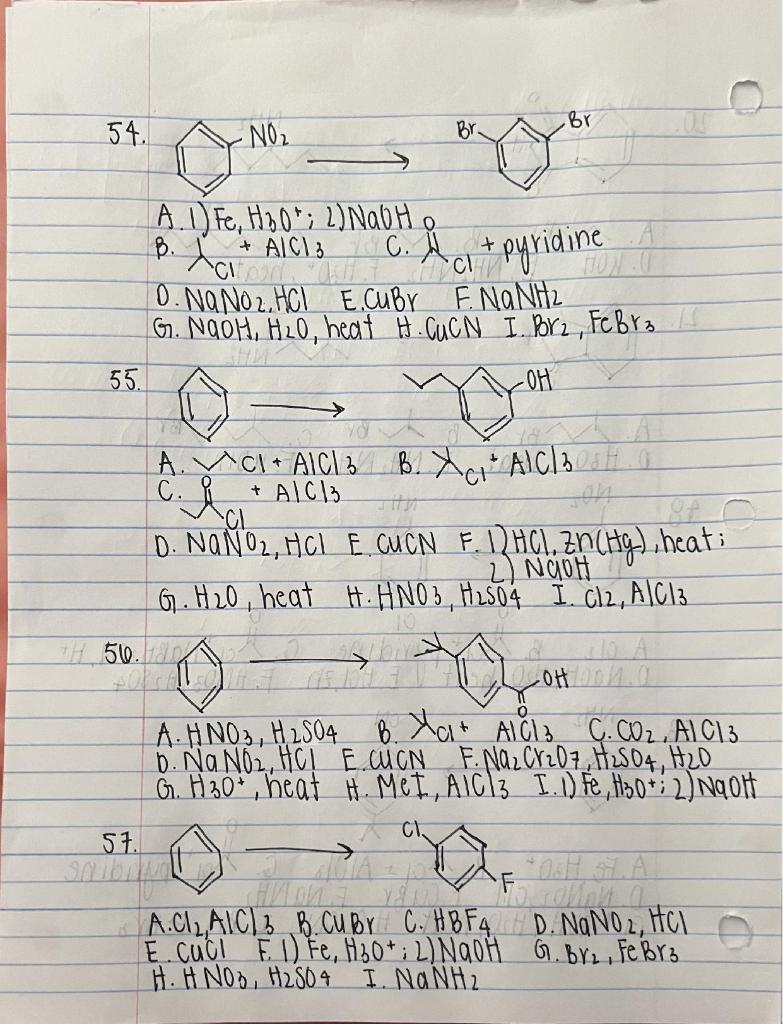 54. NO2 Br Br
A. 1) Fe, H3O+; 2) NaOH O
B. Cl + AlCl3 C. Cl + pyridine
D. NaNO2, HCl E. CuBr F. NaNH2
G. NaOH, H2O, heat H. CuCN I. Br2, FeBr3
55. OH
A. Cl + AlCl3 B. Cl + AlCl3
C. O Cl + AlCl3
D. NaNO2, HCl E. CuCN F. 1) HCl, Zn(Hg), heat;
2) NaOH
G. H2O, heat H. HNO3, H2SO4 I. Cl2, AlCl3
56. OH O
A. HNO3, H2SO4 B. Cl + AlCl3 C. CO2, AlCl3
D. NaNO2, HCl E. CuCN F. Na2Cr2O7, H2SO4, H2O
G. H3O+, heat H. MeI, AlCl3 I. 1) Fe, H3O+; 2) NaOH
57. Cl F
A. Cl2, AlCl3 B. CuBr C. HBF4 D. NaNO2, HCl
E. CuCl F. 1) Fe, H3O+; 2) NaOH G. Br2, FeBr3
H. HNO3, H2SO4 I. NaNH2